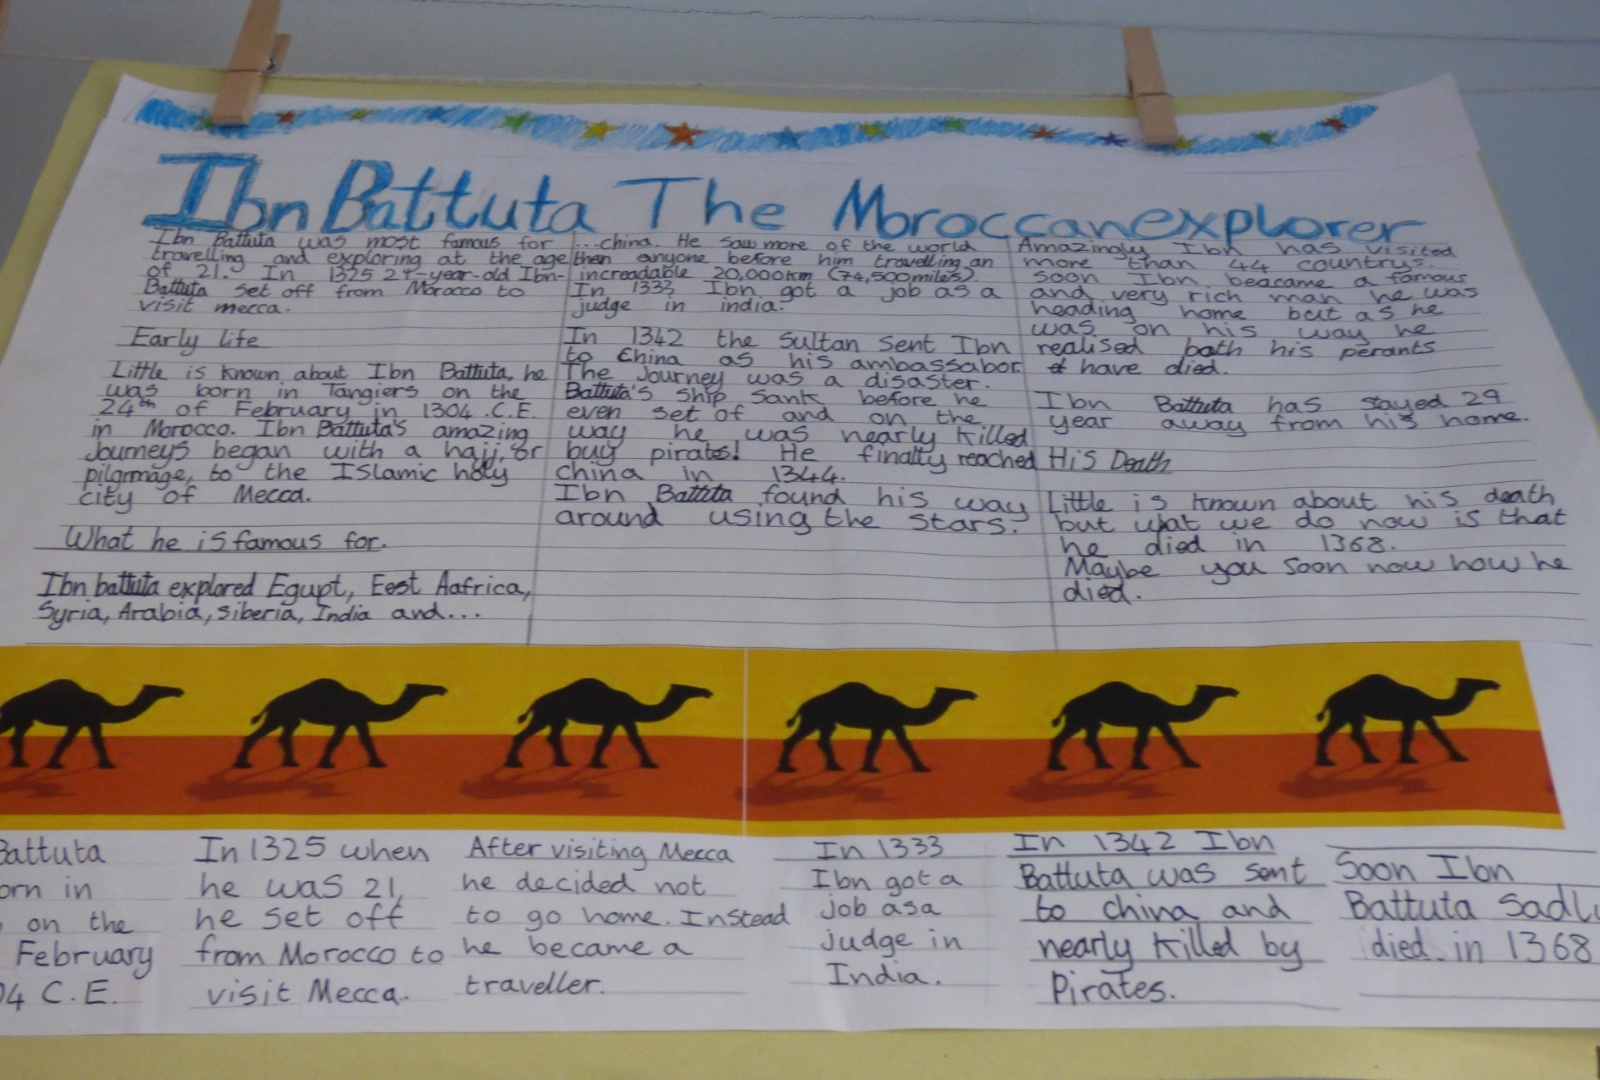 Ibn Battuta The Moroccan explorer
Ibn Battuta was most famous for
travelling and exploring at the age
of 21. In 1325 21-year-old Ibn-
Battuta set off from Morocco to
visit mecca.
Early life
Little is known about Ibn Battuta, he
was born in Tangiers on the
24th of February in 1304 .C.E.
in Morocco. Ibn Battuta's amazing
Journeys began with a hajj, or
pilgrimage, to the ISlamic holy
city of Mecca.
What he is famous for.
Ibn battuta explored Egupt, Eest Aafrica,
Syria, Arabia, siberia, India and...
...china. He saw more of the world
then anyone before him travelling an
increadable 20,000km (74,500miles).
In 1333 Ibn got a job as a
judge in india.
In 1342 the Sultan sent Ibn
to China as his ambassabor
The Journey was a disaster.
Battuta's ship sank before he
even set of and on the
way he was nearly killed
buy pirates! He finally reached
china in 1344.
Ibn Battuta found his way
around using the stars.
Amazingly Ibn has visited
more than 44 countrys.
soon Ibn beacame a famous
and very rich man he was
heading home but as he
was on his way he
realised bath his perants
have died.
Ibn Battuta has stayed 29
year away from his home.
His Death
Little is known about his death
but what we do now is that
he died in 1368.
Maybe you soon now how he
died.
Battuta
orn in
on the
February
04 C.E.
In 1325 when
he was 21,
he set off
from Morocco to
visit Mecca.
After visiting Mecca
he decided not
to go home. Instead
he became a
traveller.
In 1333
Ibn got a
job asa
judge in
India.
In 1342 Ibn
Battuta was sent
to china and
nearly killed by
Pirates.
Soon Ibn
Battuta sadl
died in 1368